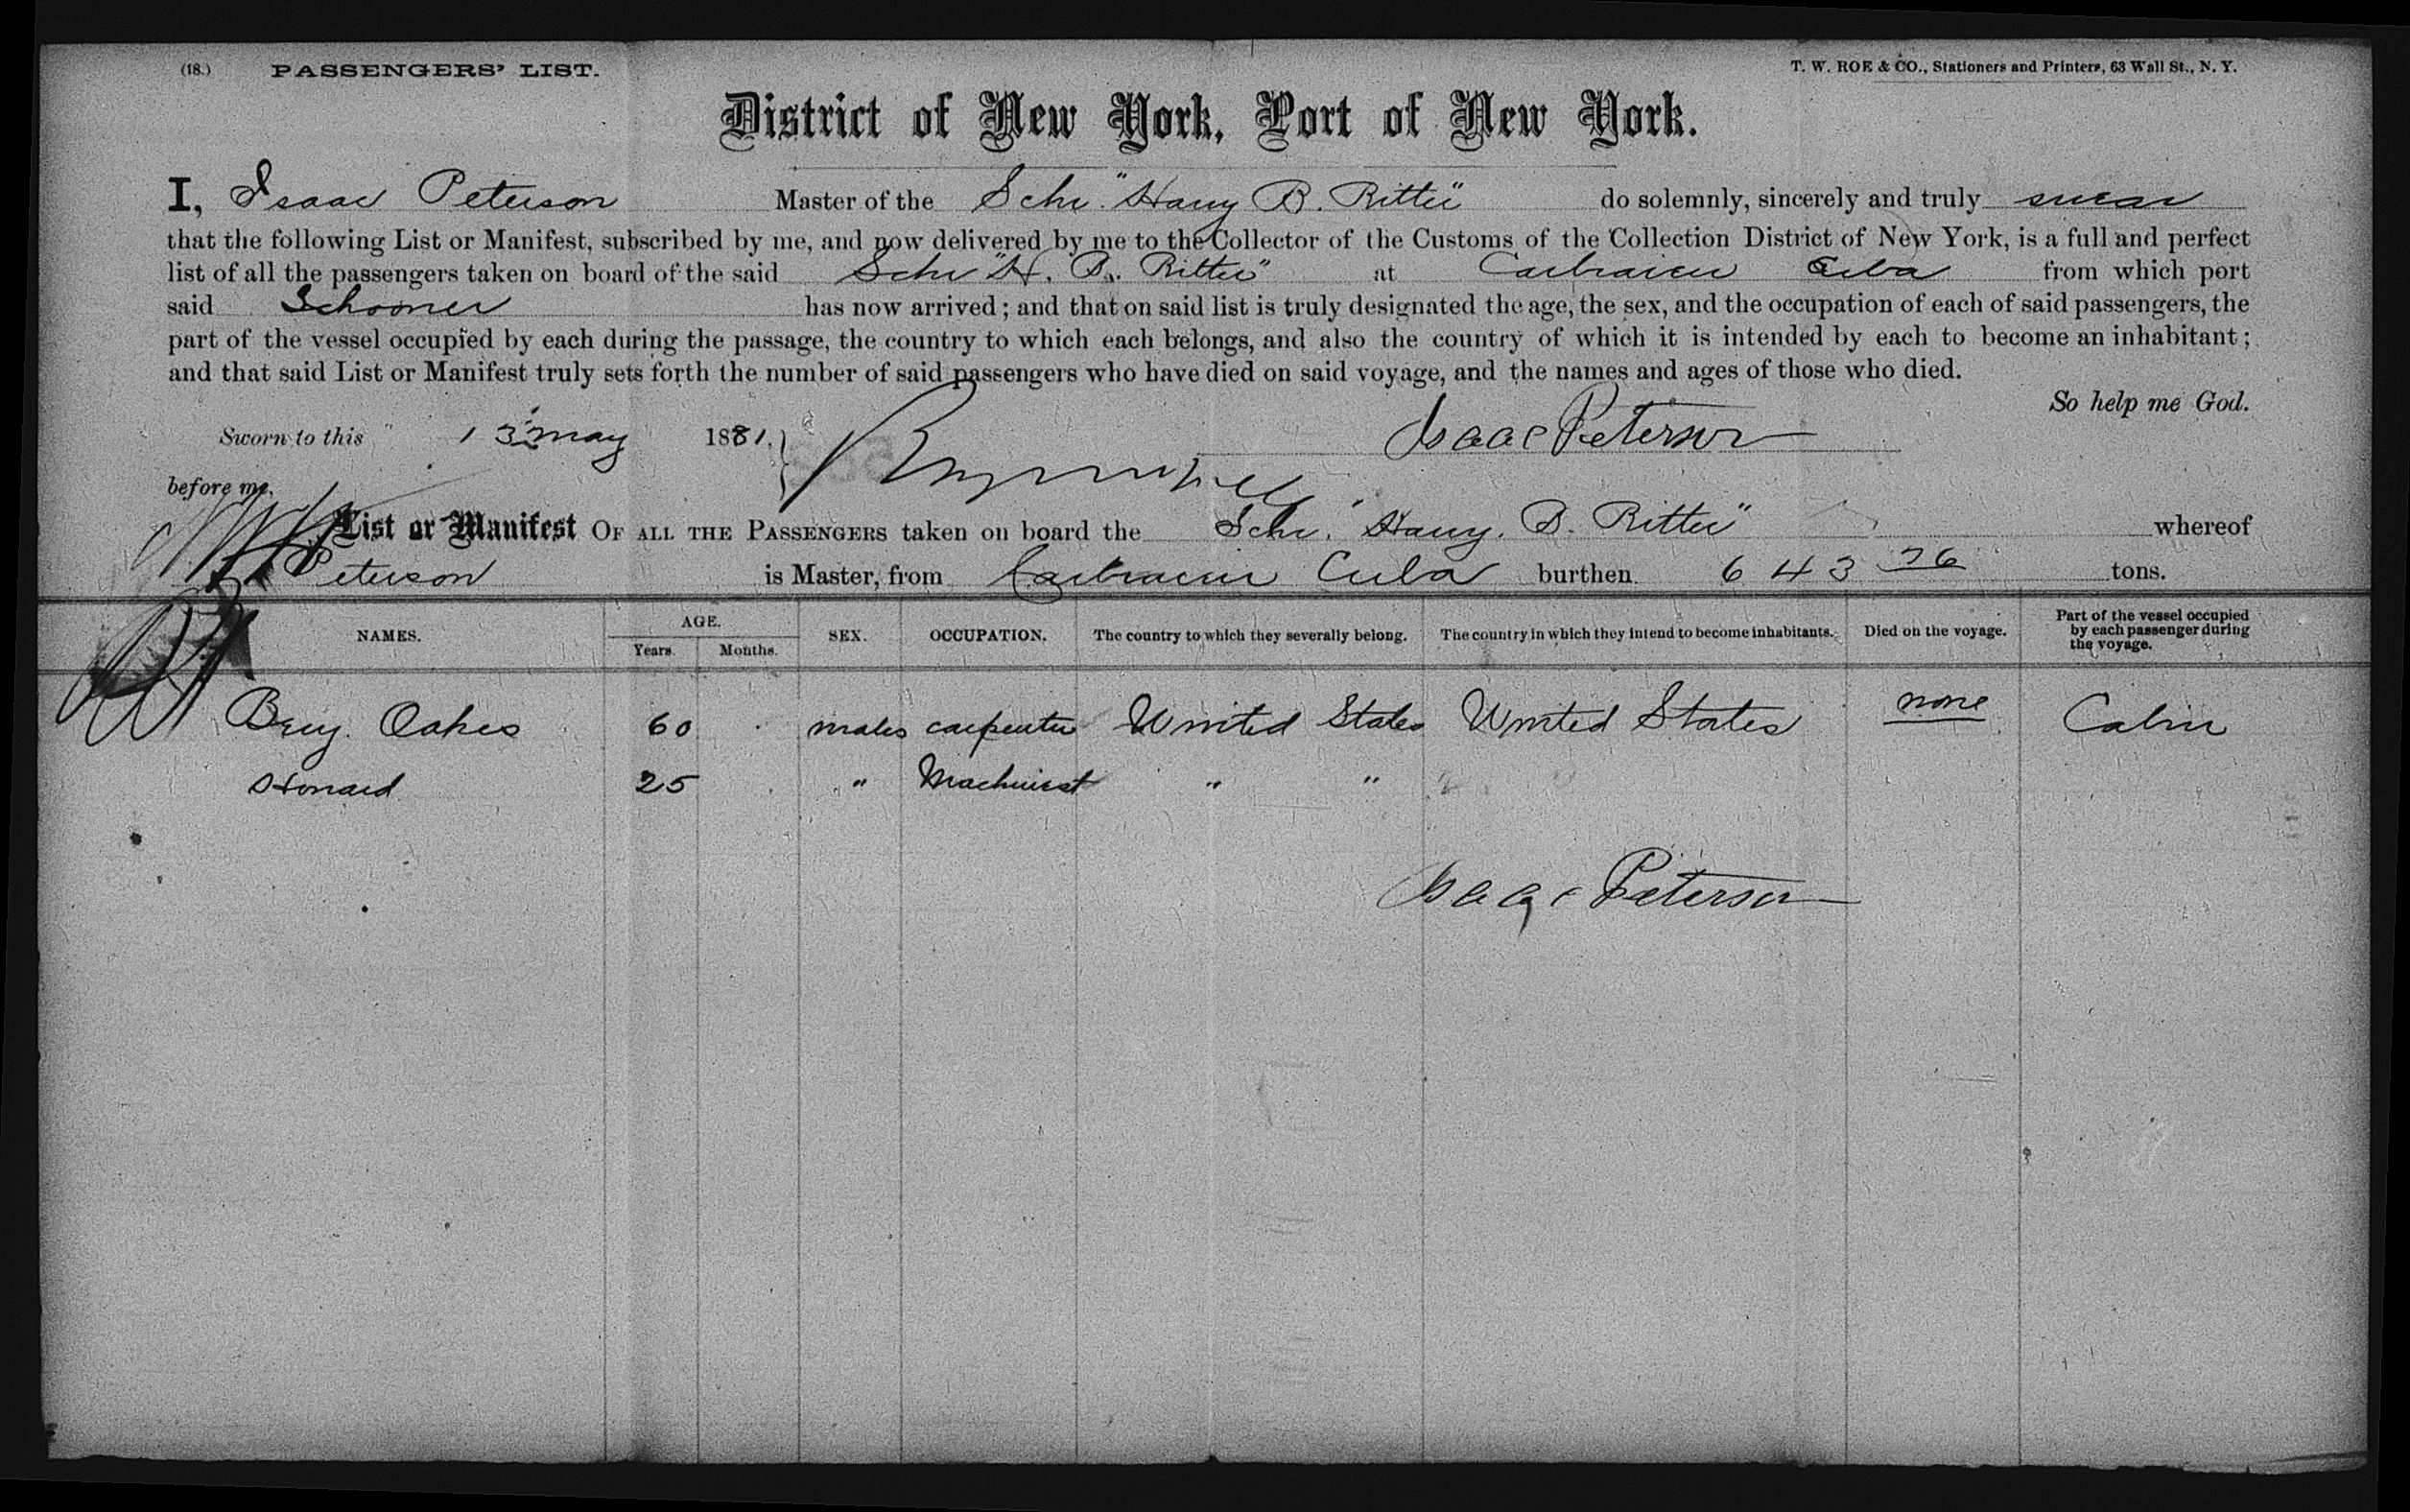 (18.) PASSENGERS' LIST. T. W. ROE & CO., Stationers and Printers, 63 Wall St., N. Y.
District of New York, Port of New York.
I, Isaac Peterson Master of the Schr. "Harry B. Ritter" do solemnly, sincerely and truly swear
that the following List or Manifest, subscribed by me, and now delivered by me to the Collector of the Customs of the Collection District of New York, is a full and perfect
list of all the passengers taken on board of the said Schr "H. B. Ritter" at Caibarien Cuba from which port
said Schooner has now arrived; and that on said list is truly designated the age, the sex, and the occupation of each of said passengers, the
part of the vessel occupied by each during the passage, the country to which each belongs, and also the country of which it is intended by each to become an inhabitant;
and that said List or Manifest truly sets forth the number of said passengers who have died on said voyage, and the names and ages of those who died.
So help me God.
Sworn to this 13 may 1881. Isaac Peterson
before me,
List or Manifest OF ALL THE PASSENGERS taken on board the Schr. "Harry. B. Ritter" whereof
Peterson is Master, from Caibarien Cuba burthen 643 76 tons.
NAMES. AGE. Years. Months. SEX. OCCUPATION. The country to which they severally belong. The country in which they intend to become inhabitants. Died on the voyage. Part of the vessel occupied by each passenger during the voyage.
Benj. Oakes 60 males carpenter United States United States none Cabin
25 " Machinist " " "
Isaac Peterson